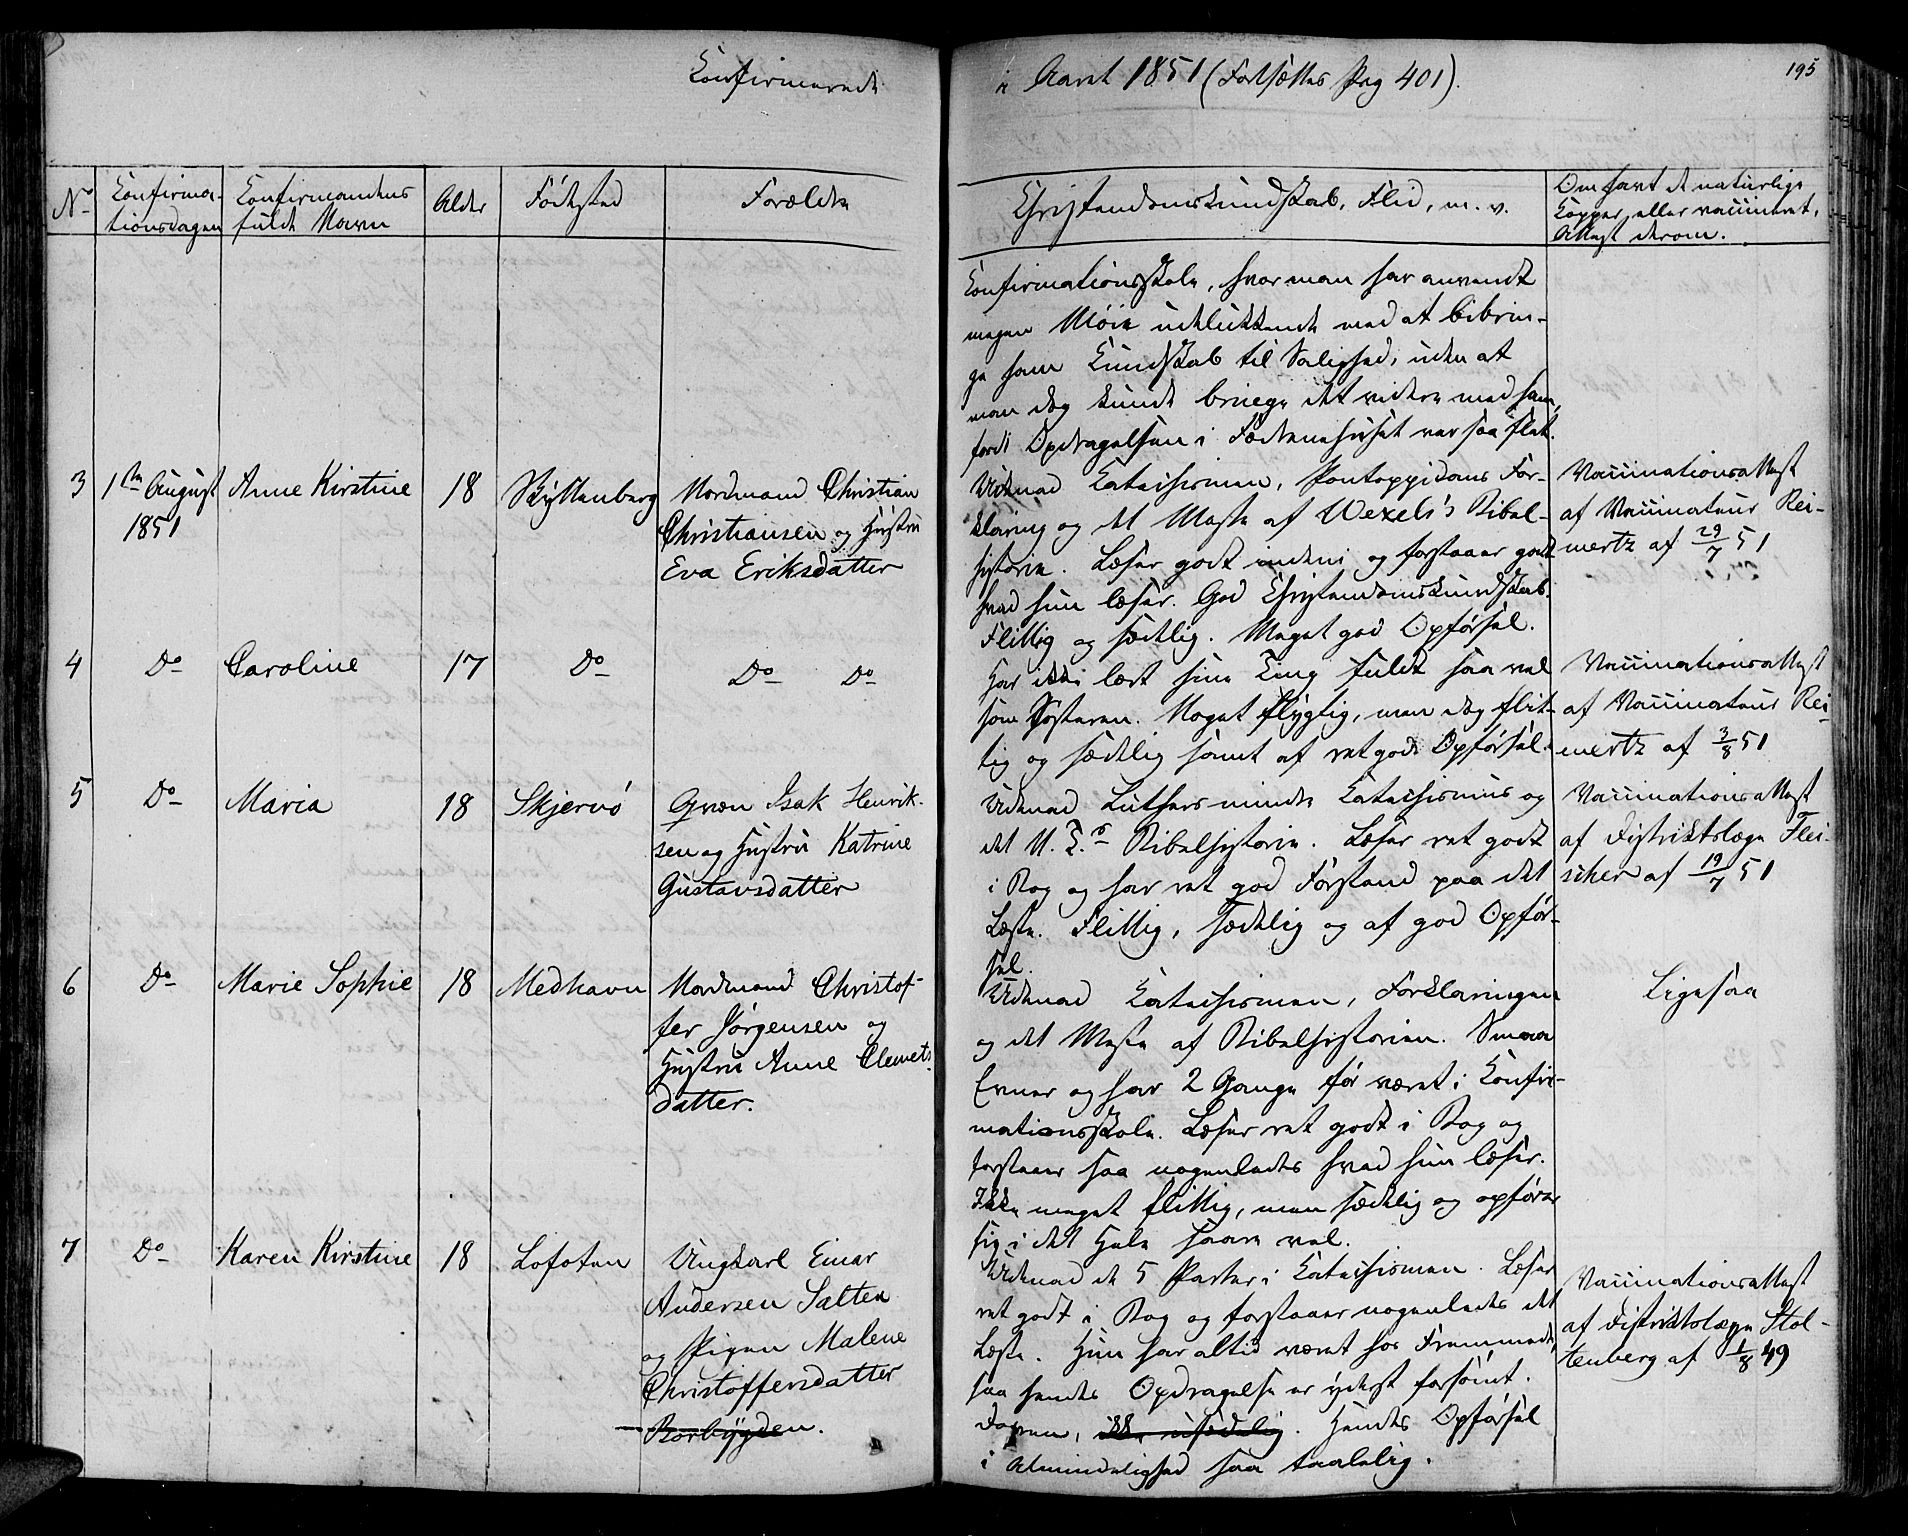 Confirmerede i Aaret 1851 (Fortsættes Pag 401).
195
No
Confirma-
tionsdagen
Confirmandens
fulde Navn
Alder
Fødested
Forældre
Christendomskundskab, Flid, m. v.
Om havt de naturlige
Kopper, eller vaccineret,
Attest derom.
Confirmationsskole, hvor man har anvendt
megen Møie udelukkende med at bibrin-
ge ham Kundskab til Salighed, uden at
man dog kunde bringe det videre med ham,
fordi Opdragelsen i Fædrenehuset var saa slet.
3
1ste August
1851
Anne Kirstine
18
Skyttenberg
Nordmand Christian
Christiansen og Hustru
Eva Eriksdatter
Udenad Catechismen, Pontoppidans For-
klaring og det Meste af Wexels's Bibel-
historie. Læser godt indeni og forstaaer godt
hvad hun læser. God Christendomskundskab.
Flittig og sædelig. Meget god Opførsel.
Vaccinationsattest
af Vaccinateur Rei-
mertz af 29/7 51
4
Do
Caroline
17
Do
Do Do
Har ikke lært sine Ting fuldt saa vel
som Søsteren. Noget flygtig, men dog flit-
tig og sædelig samt af ret god Opførsel.
Vaccinationsattest
af Vaccinateur Rei-
mertz af 3/8 51
5
Do
Maria
18
Skjervø
Qvæn Isak Henrik-
sen og Hustru Katrine
Gustavsdatter
Udenad Luthers mindre Catechismus og
det N. T.s Bibelhistorie. Læser ret godt
i Bog og har ret god Forstand paa det
Læste. Flittig, sædelig og af god Opfør-
sel.
Vaccinationsattest
af Distriktslæge Flei-
scher af 19/7 51
6
Do
Marie Sophie
18
Medhavn
Nordmand Christof-
fer Jørgensen og
Hustru Anne Clemets-
datter.
Udenad Catechismen, Forklaringen
og det Meste af Bibelhistorien. Smaa
Evner og har 2 Gange før været i Confir-
mationsskole. Læser ret godt i Bog og
forstaaer saa nogenledes hvad hun læser.
Ikke meget flittig, men sædelig og opfører
sig i det Hele saare vel.
Ligesaa
7
Do
Karen Kirstine
18
Lofoten
Ungkarl Einar
Andersen Salten
og Pigen Malene
Christoffersdatter
Rorbygden.
Udenad de 5 Parter i Catechismen. Læser
ret godt i Bog og forstaaer nogenledes det
Læste. Hun har altid været hos Fremmede,
saa hendes Opdragelse er yderst forsømt.
Doven, ikke usædelig. Hendes Opførsel
i Almindelighed saa taalelig.
Vaccinationsattest
af Distriktslæge Stol-
tenberg af 1/8 49